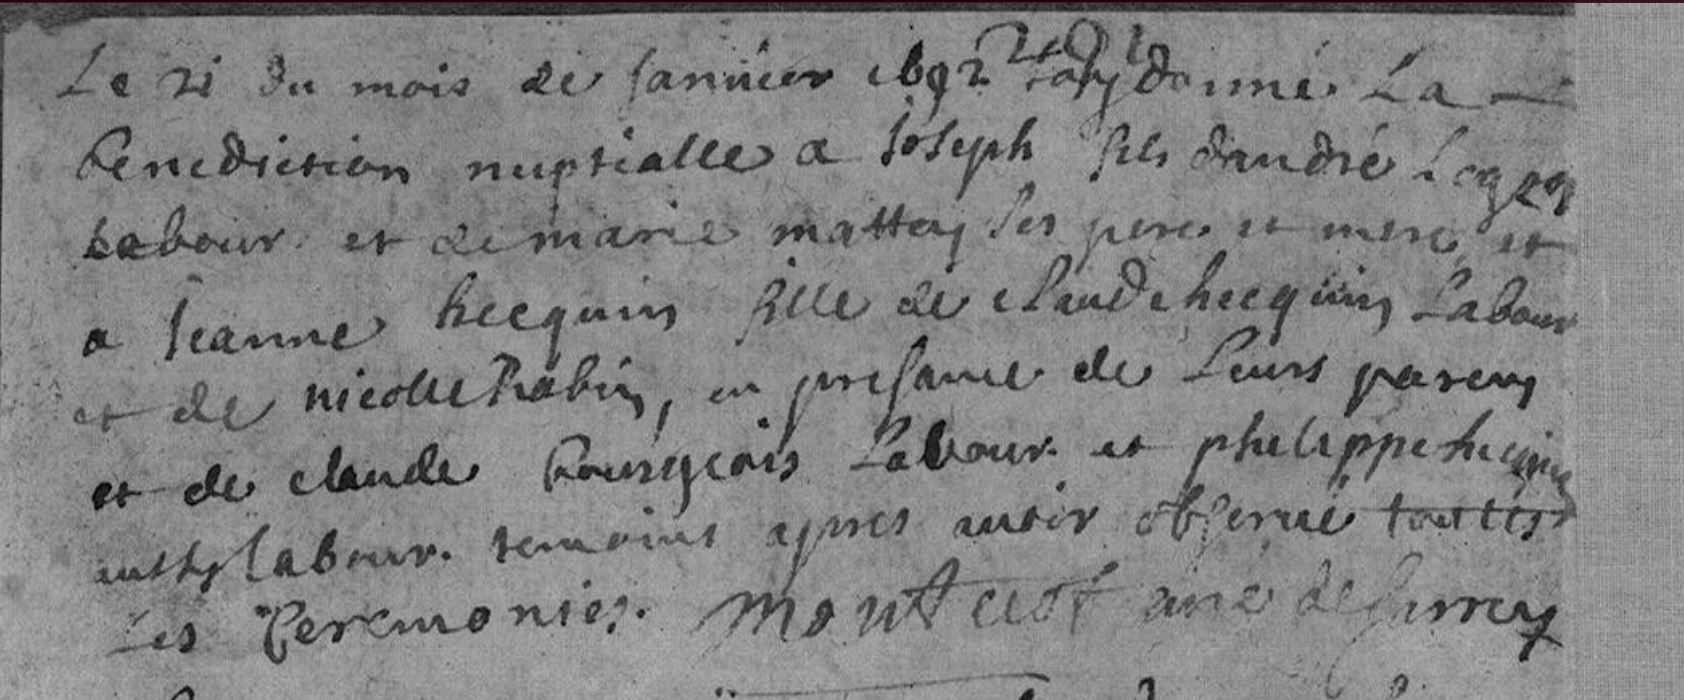 Le 21 du mois de Janvier 1692 jay donné La
benediction nuptialle a Joseph fils dandré
Labour. et de marie mattey ses pere et mere et
a Jeanne hecquin fille de claude hecquin Labour
et de nicolle Rabin, en presance de Leurs parens
et de claude bourgeois Labour. et philippe hecquin
labour. temoins apres avoir observé touttes
Les Ceremonies. curé de